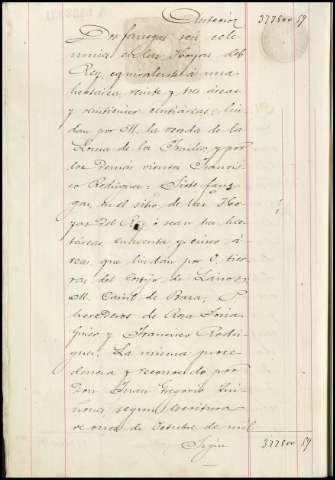 Anterior 377500 59
Dos fanegas seis cele
mines en las Hoyas del
Rey, equivalente á una
hectárea, veinte y tres áreas
y veintiocho centiáreas; lin
dan por M. la vereda de la
Loma de la y por
los demás vientos Francis
co Rodriguez = Siete fane
gas, en el sitio de las Ho
yas del Rey ó sean tres hec
táreas, cuarenta y cinco á
reas, que lindan por O. tier
ras del Cortijo de
M. Camil de Baza; P.
herederos de Rosa Soria
y Francisco Rodri
guez. La misma proce
dencia y reconocido por
Don Juan Gregorio Qui
ñones segun escritura
de once de Octubre de mil
Sigue 377500 59